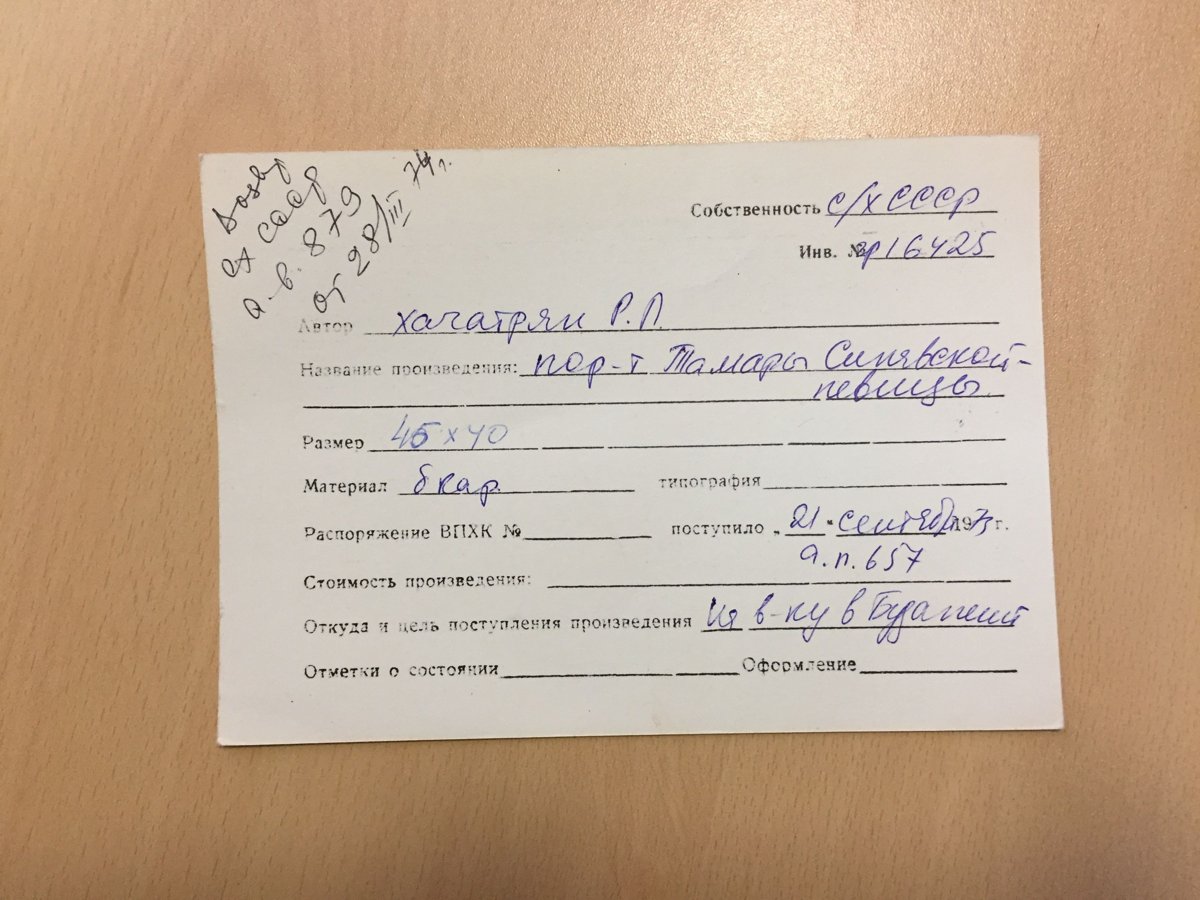 Возвр
СХ СССР
а.в. 879
от 28/III 74 г.
Собственность С/Х СССР
Инв. № гр 16425
Автор Хачатрян Р.Л.
Название произведения: пор-т Тамары Синявской-
певицы.
Размер 45 х 40
Материал б кар. типография
Распоряжение ВПХК № поступило „21 “ сентября 1973 г.
а.п. 657
Стоимость произведения:
Откуда и цель поступления произведения на в-ку в Будапешт
Отметки о состоянии Оформление